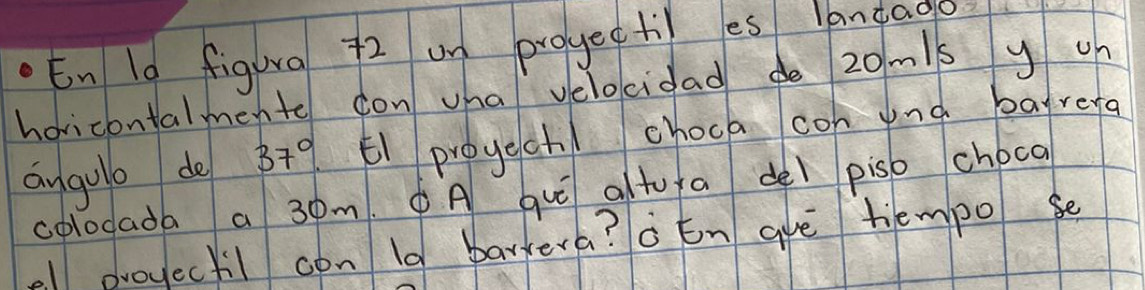 • En la figura 72 un proyectil es lanzado
horizontalmente con una velocidad de 20m/s y un
ángulo de 37°. El proyectil choca con una barrera
colocada a 30m. ¿A qué altura del piso choca
el proyectil con la barrera? ¿En qué tiempo se